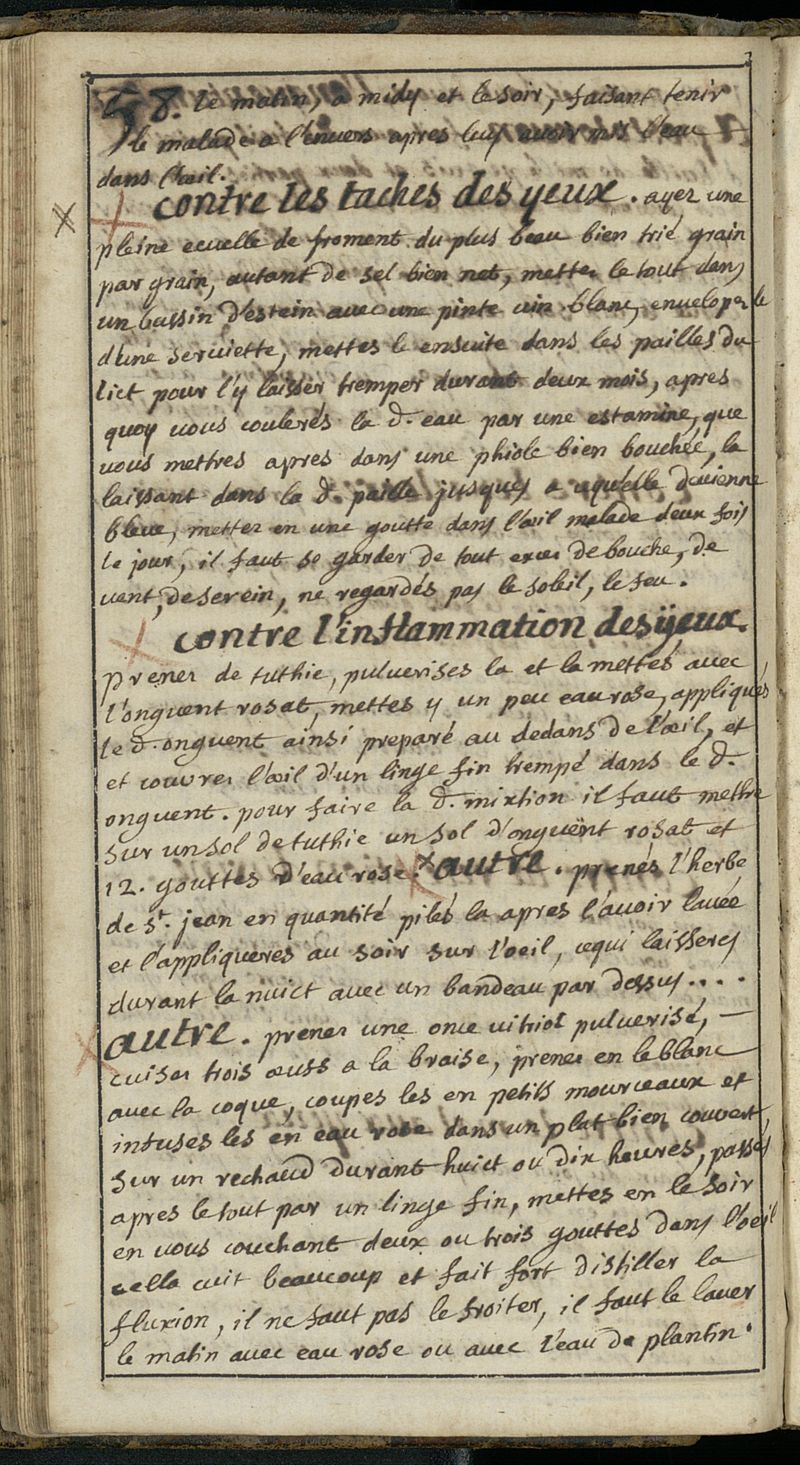 58. le matin, a midy et le soir, faisant tenir
le malade a l'envers apres luy avoir mis l'eau
dans l'œil.
contre les taches des yeux. ayez une
pleine ecuelle de froment du plus beau bien trié grain
par grain, autant de sel bien net, mettez le tout dans
un bassin d'estein avec une pinte vin blanc, envelopez le
d'une serviette, mettes le ensuite dans les pailles du
lict pour l'y laisser tremper durant deux mois, apres
quoy vous coulerés la d. eau par une estamine, que
vous mettres apres dans une phiole bien bouchée, la
laissant dans la d. paille jusques a qu'elle devienne
bleue, mettez en une goutte dans l'œil malade deux fois
le jour, il faut se garder de tout exces de bouche, de
vent, de serein, ne regardés pas le soleil, le feu.
contre l'inflammation des yeux.
prenez de tuthie, pulverises la et la mettés avec
l'onguent rosat, mettes y un peu eau rose, appliqués
le d. onguent ainsi preparé au dedans de l'œil, et
et couvrez l'œil d'un linge fin trempé dans le d.
onguent. pour faire la d. mixtion il faut mettre
sur un sol de tuthie un sol d'onguent rosat et
12. gouttes d'eau rose. x autre. prenés l'herbe
de st. jean en quantité pilés la apres l'avoir lavée
et l'appliqueres au soir sur l'oeil, ce qui laisseres
durant la nuict avec un bandeau par dessus....
autre. prenez une once vitriol pulverisé, —
cuisez trois œufs a la braise, prenez en le blanc
avec la coque, coupes les en petits mourceaux et
infuses les en eau rose dans un plat bien couvert
sur un rechaud durant huict ou dix heures, passés
apres le tout par un linge fin, mettes en le soir
en vous couchant deux ou trois gouttes dans l'oeil
cella cuit beaucoup et fait fort distiller la
fluxion, il ne faut pas le froiter, il faut le laver
le matin avec eau rose ou avec l'eau de plantin.